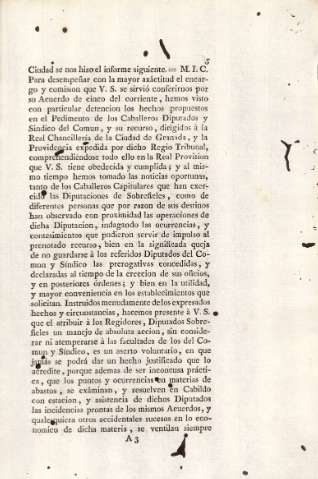 5
Ciudad se nos hizo el informe siguiente. = M. I. C.
Para desempeñar con la mayor exâctitud el encar-
go y comision que V. S. se sirvió conferirnos por
su Acuerdo de cinco del corriente, hemos visto
con particular detencion los hechos propuestos
en el Pedimento de los Caballeros Diputados y
Síndico del Comun, y su recurso, dirigidos á la
Real Chancillería de la Ciudad de Granada, y la
Providencia expedida por dicho Regio Tribunal,
comprehendiéndose todo ello en la Real Provision
que V. S. tiene obedecida y cumplida; y al mis-
mo tiempo hemos tomado las noticias oportunas,
tanto de los Caballeros Capitulares que han exer-
cido las Diputaciones de Sobrefieles, como de
diferentes personas que por razon de sus destinos
han observado con proximidad las operaciones de
dicha Diputacion, indagando las ocurrencias, y
contestaciones que pudieron servir de impulso al
prenotado recurso, bien en la significada queja
de no guardarse á los referidos Diputados del Co-
mun y Síndico las prerogativas concedidas, y
declaradas al tiempo de la creccion de sus oficios,
y en posteriores órdenes; y bien en la utilidad,
y mayor conveniencia en los establecimientos que
solicitan. Instruidos menudamente de los expresados
hechos y circunstancias, hacemos presente á V. S.
que el atribuir á los Regidores, Diputados Sobre-
fieles un manejo de absoluta accion, sin conside-
rar ni atemperarse á las facultades de los del Co-
mun y Síndico, es un aserto voluntario, en que
jamás se podrá dar un hecho justificado que lo
acredite, porque ademas de ser inconcusa prácti-
ca, que los puntos y ocurrencias en materias de
abastos, se exâminan, y resuelven en Cabildo
con citacion, y asistencia de dichos Diputados
las incidencias prontas de los mismos Acuerdos, y
qualesquiera otros accidentales sucesos en lo eco-
nomico de dicha materia, se ventilan siempre
A 3